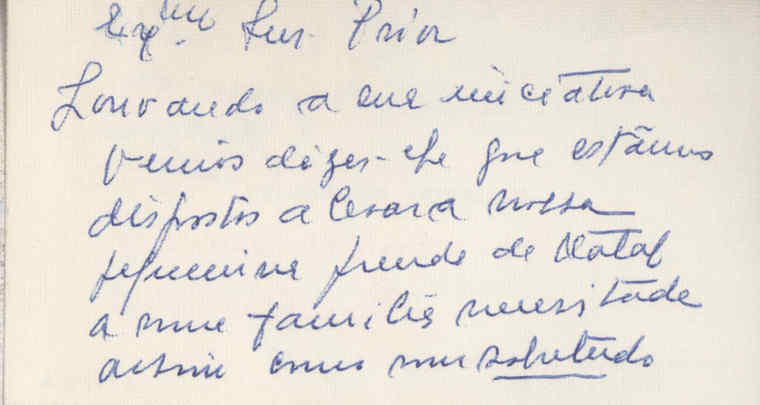 Exmo Snr. Prior
Louvando a sua iniciativa
vimos dizer-lhe que estamos
dispostos a levar a nossa
pequenina prenda de Natal
a uma família necessitada
assim como um sobretudo